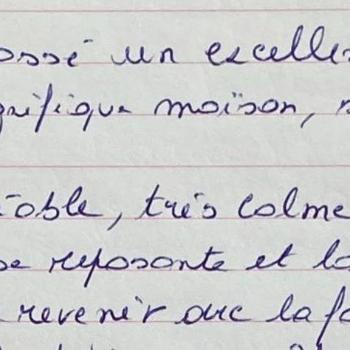 ossé un excelle
gnifique moïson, 
oble, très colme
se reposonte et lo
revenir ovec la fo